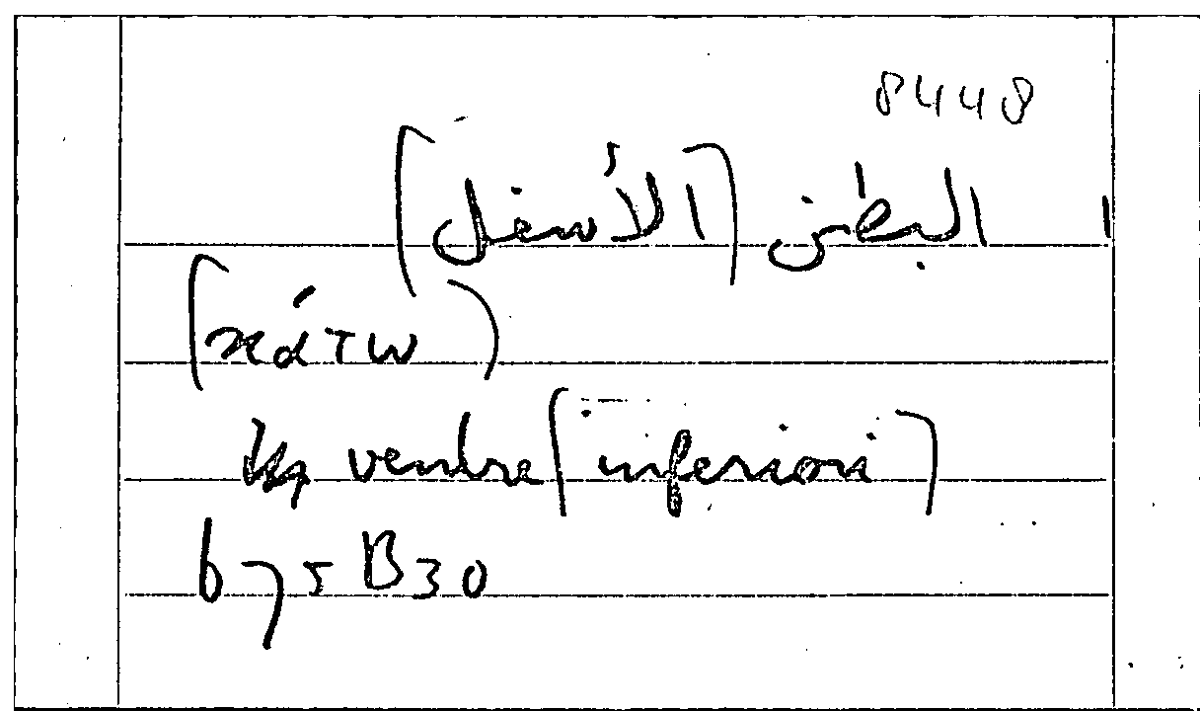 8448
البطن (الأسفل)
(κάτω)
ventre (inferiori)
675 B 30